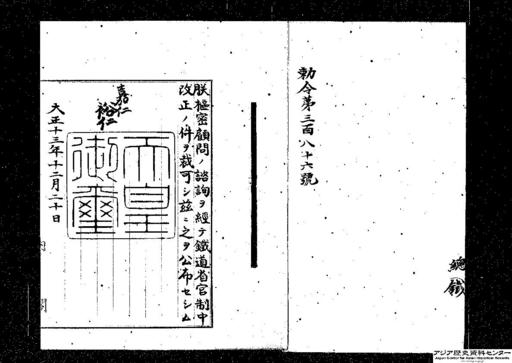 勅令第三百八十六號
朕樞密顧問ノ諮詢ヲ經テ鐵道省官制中
改正ノ件ヲ裁可シ茲ニ之ヲ公布セシム
嘉仁
裕仁
天皇
御璽
大正十三年十二月二十日
內閣
總
鐵
アジア歴史資料センター
Japan Center for Asian Historical Records